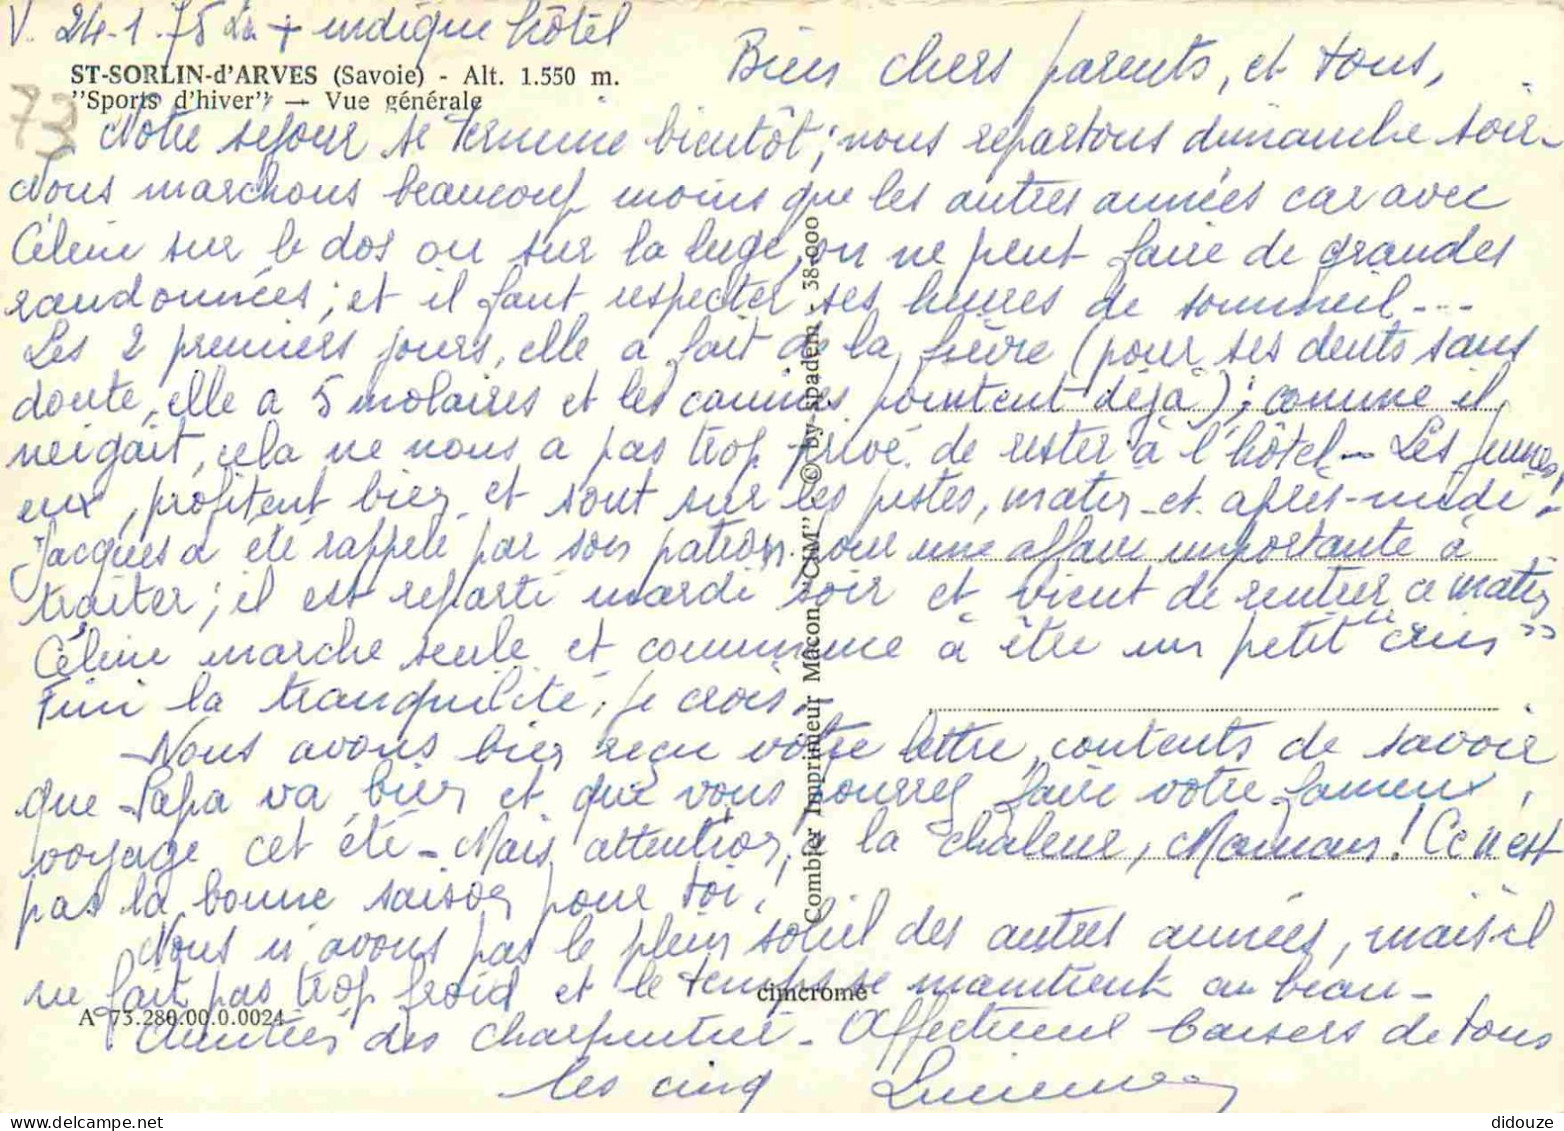 V. 24-1-75 La + indique hôtel
ST-SORLIN-d'ARVES (Savoie) - Alt. 1.550 m.
"Sports d'hiver" — Vue générale
73
Bien chers parents, et tous,
Notre séjour se termine bientôt ; nous repartons dimanche soir.
Nous marchons beaucoup moins que les autres années car avec
Céline sur le dos ou sur la luge, on ne peut faire de grandes
randonnées ; et il faut respecter ses heures de sommeil...
Les 2 premiers jours, elle a fait de la fièvre (pour ses dents sans
doute, elle a 5 molaires et les canines pointent déjà) ; comme il
neigait, cela ne nous a pas trop privé de rester à l'hôtel — Les jeunes,
eux, profitent bien et sont sur les pistes, matin et après-midi.
Jacques a été rappelé par son patron pour une affaire importante à
traiter ; il est reparti mardi soir et vient de rentrer ce matin
Céline marche seule et commence à être un petit "cris"
Fini la tranquilité, je crois.
Nous avons bien reçu votre lettre, contents de savoir
que Papa va bien et que vous pourrez faire votre fameux
voyage cet été - Mais attention, à la chaleur, Maman ! Ce n'est
pas la bonne saison pour toi !
Nous n'avons pas le plein soleil des autres années, mais il
ne fait pas trop froid et le temps se maintient au beau -
Amitiés des Charpentier - Affectueux baisers de tous
les cinq Lucienne
Combier Imprimeur Mâcon "CIM" © by spadem - 38-000
cimcrome
A 73.280.00.0.0024
didouze